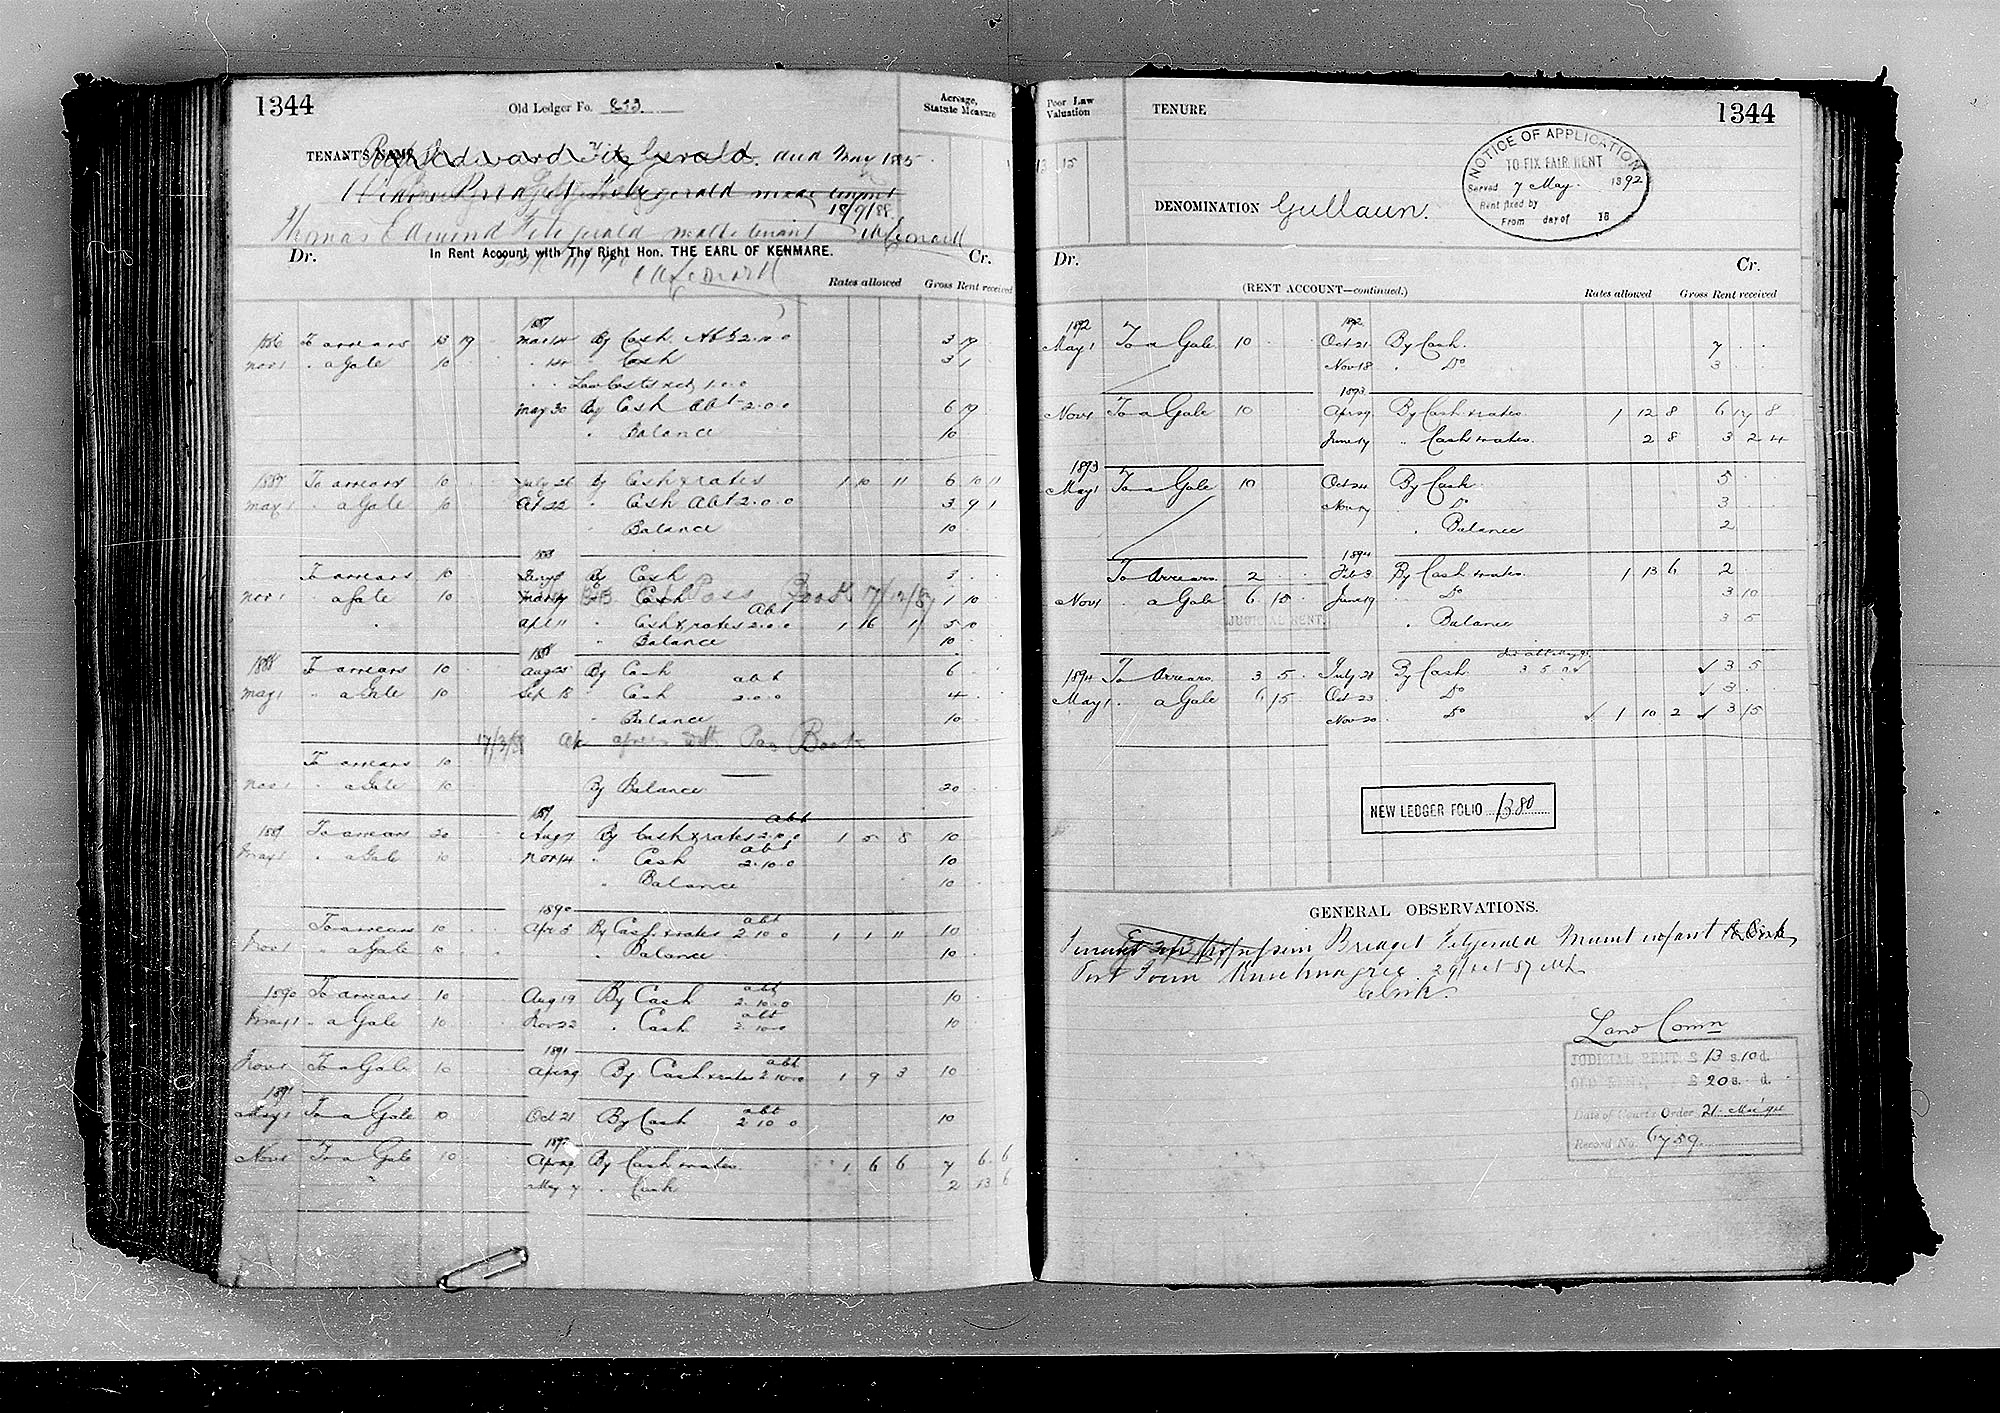 1344
Old Ledger Fo. 873
Acreage, Statute Measure
TENANT'S NAME Edward Fitzgerald. died May 1885
Widow Bridget Fitzgerald make tenant
18/9/88
Thomas Edmund Fitzgerald make tenant
Dr. In Rent Account with The Right Hon. THE EARL OF KENMARE. Cr.
Rates allowed Gross Rent received
1887
1886 To arrears 13 19 Mar 14 By Cash Abt 2.10.0 3 19
Nov 1 " a Gale 10 " 14 " Cash 3 1
" " Law Costs 1.0.0
May 30 By Cash Abt 2.0.0 6 19
" Balance 10
1887 To arrears 10 July 26 By Cash & rates 1 10 11 6 10 11
May 1 " a Gale 10 Oct 22 " Cash Abt 2.0.0 3 9 1
" Balance 10
1888
To arrears 10 By Cash 3
Nov 1 " a Gale 10 " Cash 1 10
Pass Book 17/12/87
Abt
Apl 11 " Cash & rates 2.0.0 1 16 1 5 10
" Balance 10
1888
1888 To arrears 10 Aug 25 By Cash 6
May 1 " a Gale 10 Sep 18 " Cash abt 2.0.0 4
" Balance 10
17/3/89 a/c agrees with Pass Book
To arrears 10
Nov 1 " a Gale 10 By Balance 20
1889
1889 To arrears 20 Aug 7 By Cash & rates abt 2.0.0 1 5 8 10
May 1 " a Gale 10 Nov 14 " Cash abt 2.10.0 10
" Balance 10
1890
To arrears 10 Apr 3 By Cash & rates abt 2 10 0 1 1 11 10
Nov 1 " a Gale 10 " Balance 10
1890 To arrears 10 Aug 19 By Cash abt 2.10.0 10
May 1 " a Gale 10 Nov 22 " Cash abt 2.10.0 10
1891
Nov 1 To a Gale 10 Apr 29 By Cash & rates abt 2.10.0 1 9 3 10
1891
May 1 To a Gale 10 Oct 21 By Cash abt 2 10 0 10
1892
Nov 1 To a Gale 10 Apr 29 By Cash & rates 1 6 6 7 6 6
May 7 " Cash 2 13 6
Poor Law Valuation
TENURE
1344
13 15
NOTICE OF APPLICATION
TO FIX FAIR RENT
Served 7 May. 1892
Rent fixed by
From day of 18
DENOMINATION Gullaun.
Dr. Cr.
(RENT ACCOUNT—continued.) Rates allowed Gross Rent received
1892 1892
May 1 To a Gale 10 Oct 21 By Cash. 7
Nov 18 " Do 3
1893
Nov 1 To a Gale 10 Apr 29 By Cash & rates 1 12 8 6 17 8
June 19 " Cash & rates. 2 8 3 2 4
1893
May 1 To a Gale 10 Oct 24 By Cash 5
Nov 17 " Do 3
" Balance 2
1894
To Arrears 2 Feb 3 By Cash & rates. 1 13 6 2
Nov 1 " a Gale 6 15 June 19 " Do 3 10
JUDICIAL RENT
" Balance 3 5
1894 To Arrears 3 5 July 21 By Cash 3 5 0 3 5
May 1 " a Gale 6 15 Oct 23 Do 3
Nov 20 Do 1 10 2 3 15
NEW LEDGER FOLIO 1380
GENERAL OBSERVATIONS.
Bridget Fitzgerald
29/Oct 87
Land Comn
JUDICIAL RENT. £ 13 s. 10 d.
OLD RENT, £ 20 s. d.
Date of Court's Order 21
Record No. 6759